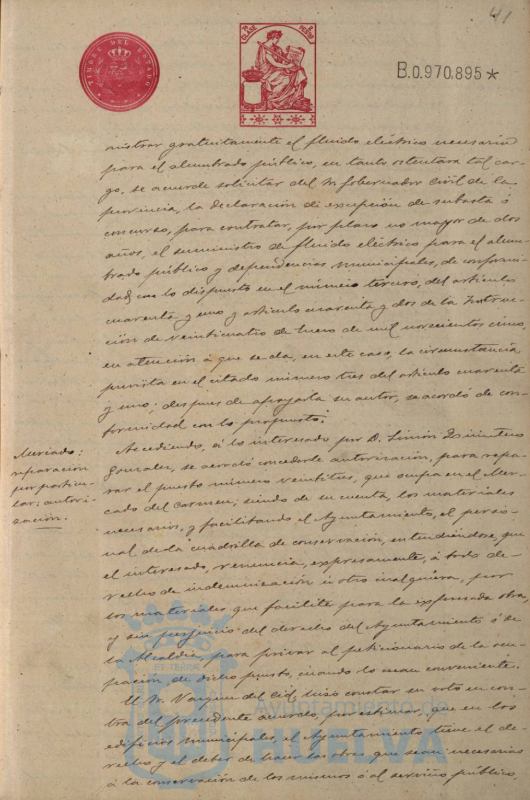 41
TIMBRE DEL ESTADO
B.0.970.895*
nistrar gratuitamente el fluido eléctrico necesario
para el alumbrado público, en tanto ostentara tal car-
go, se acuerde solicitar del Sr Gobernador Civil de la
provincia, la declaración de excepción de subasta ó
concurso, para contratar, por plazo no mayor de dos
años, el suministro de fluido eléctrico para el alum-
brado público y dependencias municipales, de conformi-
dad con lo dispuesto en el número tercero, del artículo
cuarenta y uno y artículo cuarenta y dos de la Instruc-
ción de veinticuatro de Enero de mil novecientos cinco,
en atención á que se da, en este caso, la circunstancia
prevista en el citado número tres del artículo cuarenta
y uno; después de apoyarla su autor, se acordó de con-
formidad con lo propuesto.
Mercado:
reparación
por particu-
lar: autori-
zación.
Accediendo, á lo interesado por D. Simón Quintero
Gonzalez, se acordó concederle autorización, para repa-
rar el puesto número veintitres, que ocupa en el Mer-
cado del Carmen; siendo de su cuenta, los materiales
necesarios, y facilitando el Ayuntamiento, el perso-
nal de la cuadrilla de conservación, entendiéndose, que
el interesado, renuncia, expresamente, á todo de-
recho de indemnización ú otro cualquiera, por
los materiales que facilite para la expresada obra,
y sin perjuicio del derecho del Ayuntamiento ó de
la Alcaldía, para privar al peticionario de la ocu-
pación, de dicho puesto, cuando lo crean conveniente.
El Sr. Vazquez del Cid, hizo constar su voto en con-
tra del precedente acuerdo, por estimar, que en los
edificios municipales, el Ayuntamiento tiene el de-
recho y el deber de hacer las obras que sean necesarias
á la conservación de los mismos ó al servicio público,
Ayuntamiento de
HUELVA